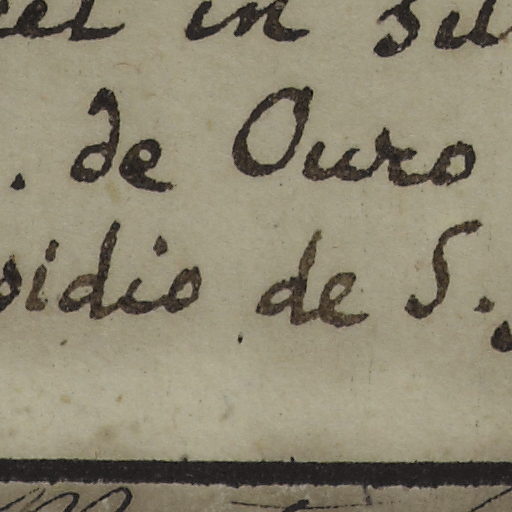 in
. de Ouro
sidio de S.